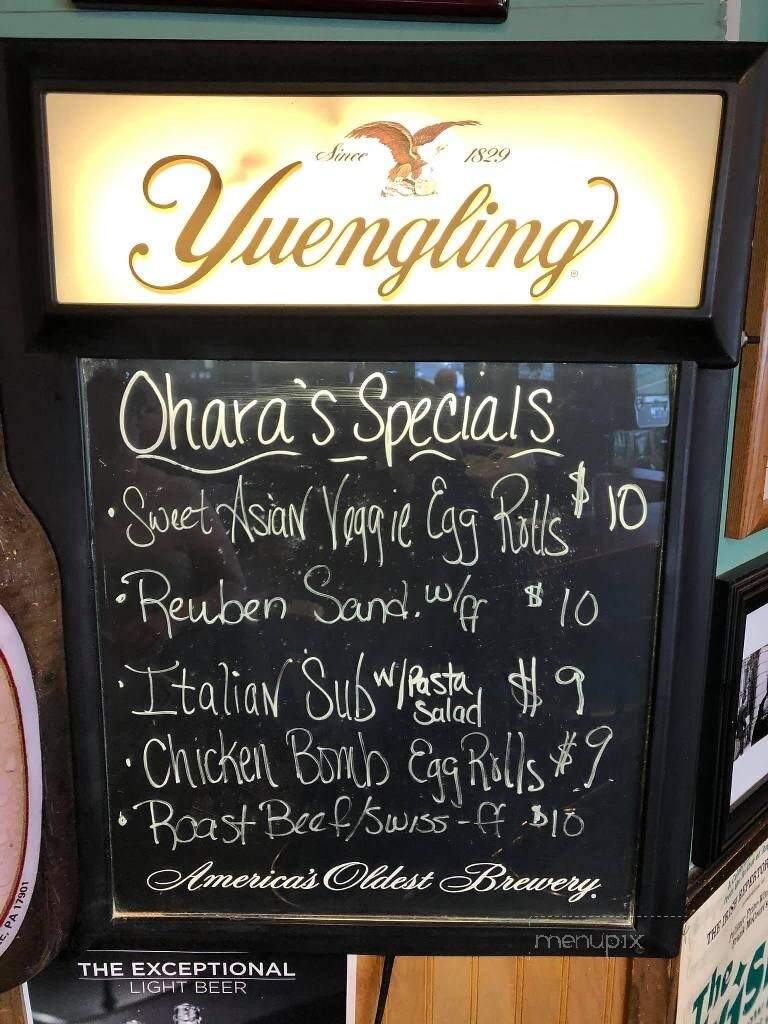 Since 1829
Yuengling®
Ohara's Specials
· Sweet Asian Veggie Egg Rolls $10
· Reuben Sand. w/ff $10
· Italian Sub w/Pasta Salad $9
· Chicken Bomb Egg Rolls $9
· Roast Beef/Swiss-ff $10
America's Oldest Brewery.
menupix
PA 17901
THE EXCEPTIONAL
LIGHT BEER
THE IRISH
The